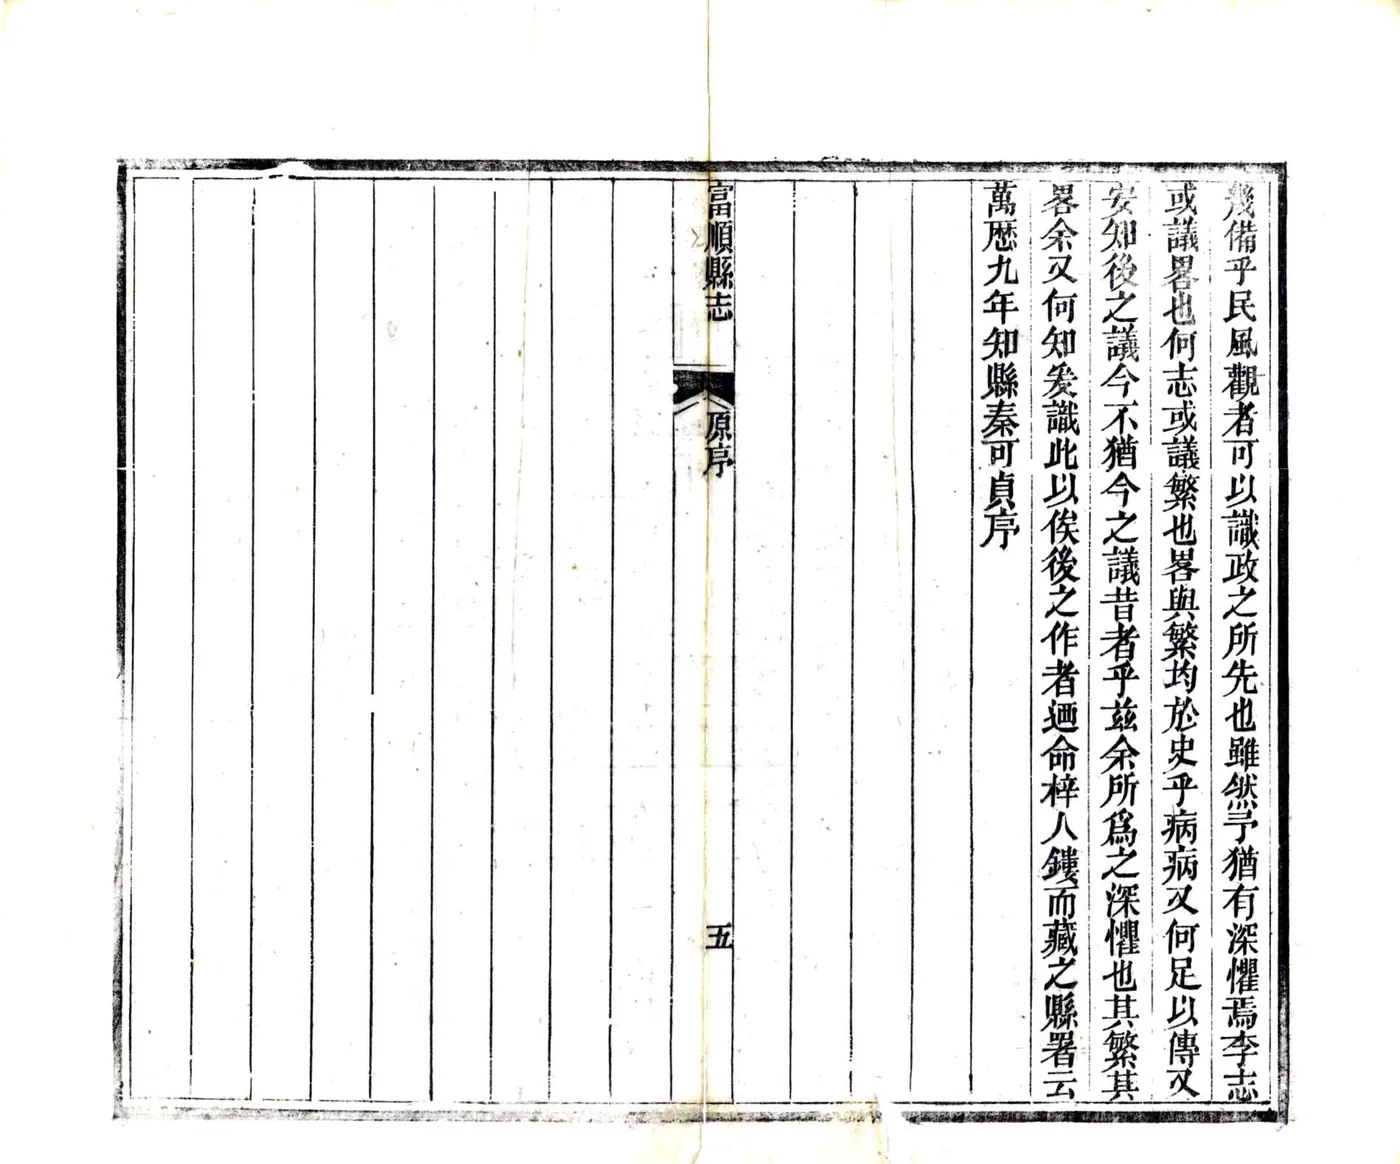 幾備乎民風觀者可以識政之所先也雖然予猶有深懼焉李志
或議畧也何志或議繁也畧與繁均於史乎病病又何足以傳又
安知後之議今不猶今之議昔者乎茲余所爲之深懼也其繁其
畧余又何知爰識此以俟後之作者迺命梓人鏤而藏之縣署云
萬歷九年知縣秦可貞序
富順縣志
原序
五